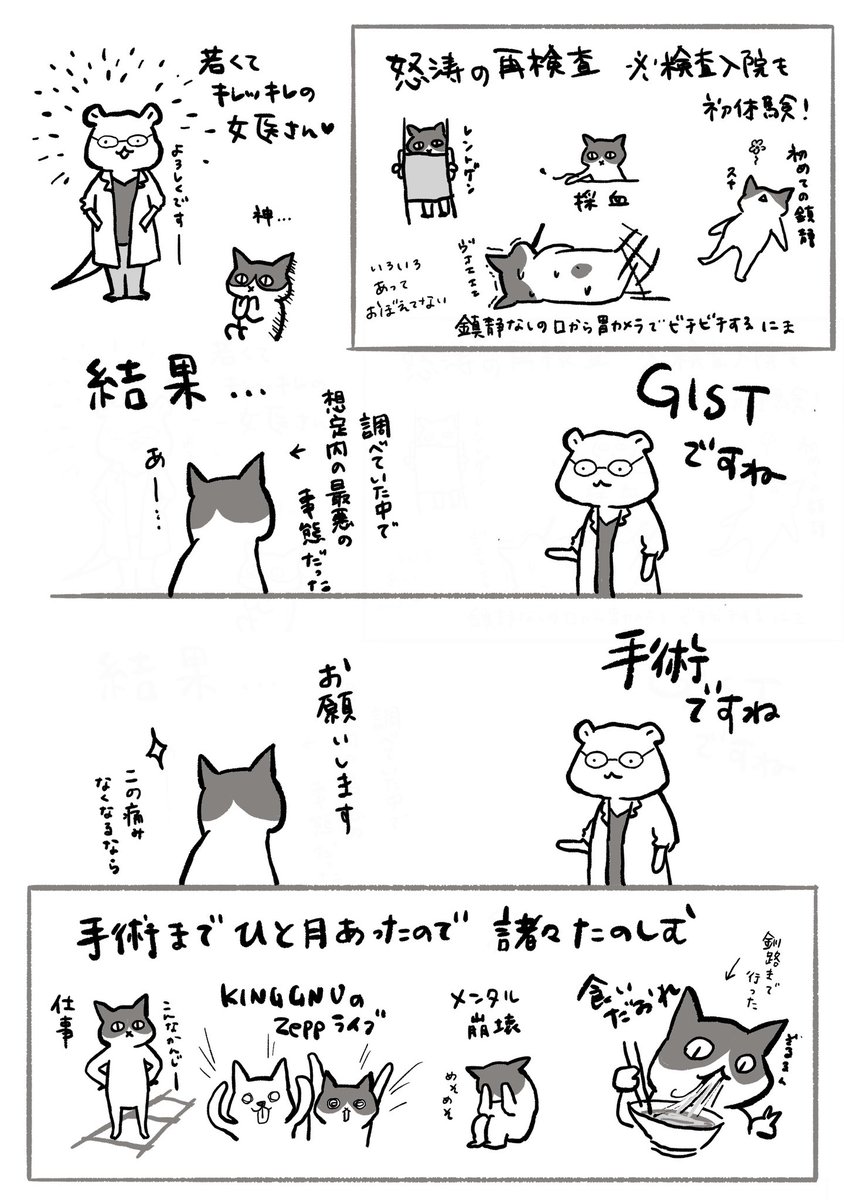 若くて
キレッキレの
女医さん♥
よろしくですー
神…
怒涛の再検査 ※検査入院も
初体験！
レントゲン
採血
初めての鎮静
スヤ
いろいろ
あって
おぼえてない
鎮静なしの口から胃カメラでビチビチするにま
結果…
あー…
調べていた中で
想定内の最悪の
事態だった
GIST
ですね
手術
ですね
お願いします
この痛み
なくなるなら
手術までひと月あったので 諸々たのしむ
仕事
こんなかんじー
KING GNUの
Zeppライブ
メンタル
崩壊
めそめそ
食い
だおれ
釧路まで
行った